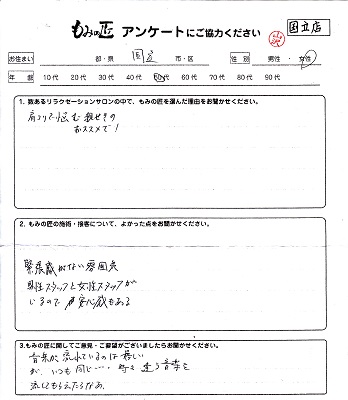 もみの匠 アンケートにご協力ください
国立店
お住まい 都・県 国立 市・区 性別 男性・女性
年齢 10代 20代 30代 40代 50代 60代 70代 80代 90代
1. 数あるリラクゼーションサロンの中で、もみの匠を選んだ理由をお聞かせください。
肩こりに悩む親せきの
おススメで!
2. もみの匠の施術・接客について、よかった点をお聞かせください。
緊張感がない雰囲気
男性スタッフと女性スタッフが
いるので 安心感もある
3.もみの匠に関してご意見・ご要望がございましたらお聞かせください。
音楽が流れているのは
が、いつも同じ… 時々違う音楽を
流してもらえたらなあ